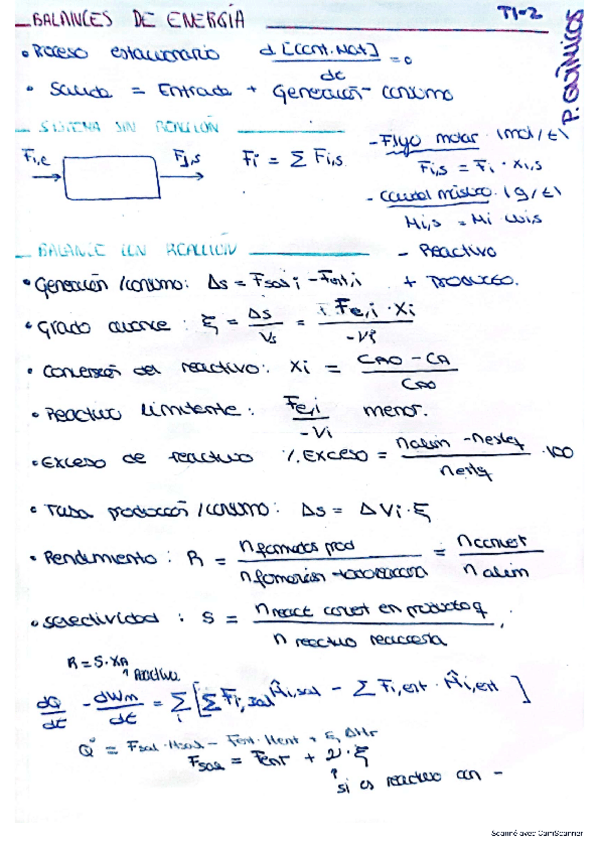 BALANCES DE ENERGÍA
T1-2
P. QUÍMICOS
• Proceso estacionario d[Cont. Mat]/dt = 0
• Salida = Entrada + Generación - consumo
SISTEMA SIN REACCIÓN
Fi,e Fj,s Fi = Σ Fi,s
- Flujo molar (mol/t)
Fi,s = Fi · xi,s
- Caudal másico (g/t)
Mi,s = Mi wi,s
BALANCE CON REACCIÓN
- Reactivo
+ PRODUCTO.
• Generación/consumo: Δs = Fsal,i - Fent,i
• Grado avance: ξ = Δs/Vs = Fe,i · Xi/-Vi
• Conversión del reactivo: Xi = CA0 - CA/CA0
• Reactivo limitante: Fe,i/-Vi menor.
• Exceso de reactivo % Exceso = nalim - nesteq/nesteq · 100
• Tasa producción/consumo: Δs = ΔVi · ξ
• Rendimiento: R = n formados prod/n formarían = nconvert/nalim
• Selectividad: S = n react convert en producto q/n reactivo reacciona
R = S · XA
↑ Reactivo
dQ/dt - dWm/dt = Σi [Σ Fi,sal Ĥi,sal - Σ Fi,ent · Ĥi,ent]
Q° = Fsal · Hsal - Fent · Hent + ξ ΔHr
Fsal = Fent + ν · ξ
↑ si es reactivo con -
Scanné avec CamScanner